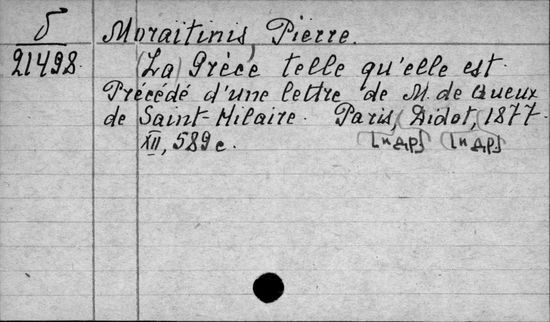 б Moraïtinis Pierre.
21498. La Grèce telle qu'elle est.
Précédé d'une lettre de M. de Queux
de Saint-Hilaire. Paris, Didot, 1877.
XII, 589 с. [и др] [и др]